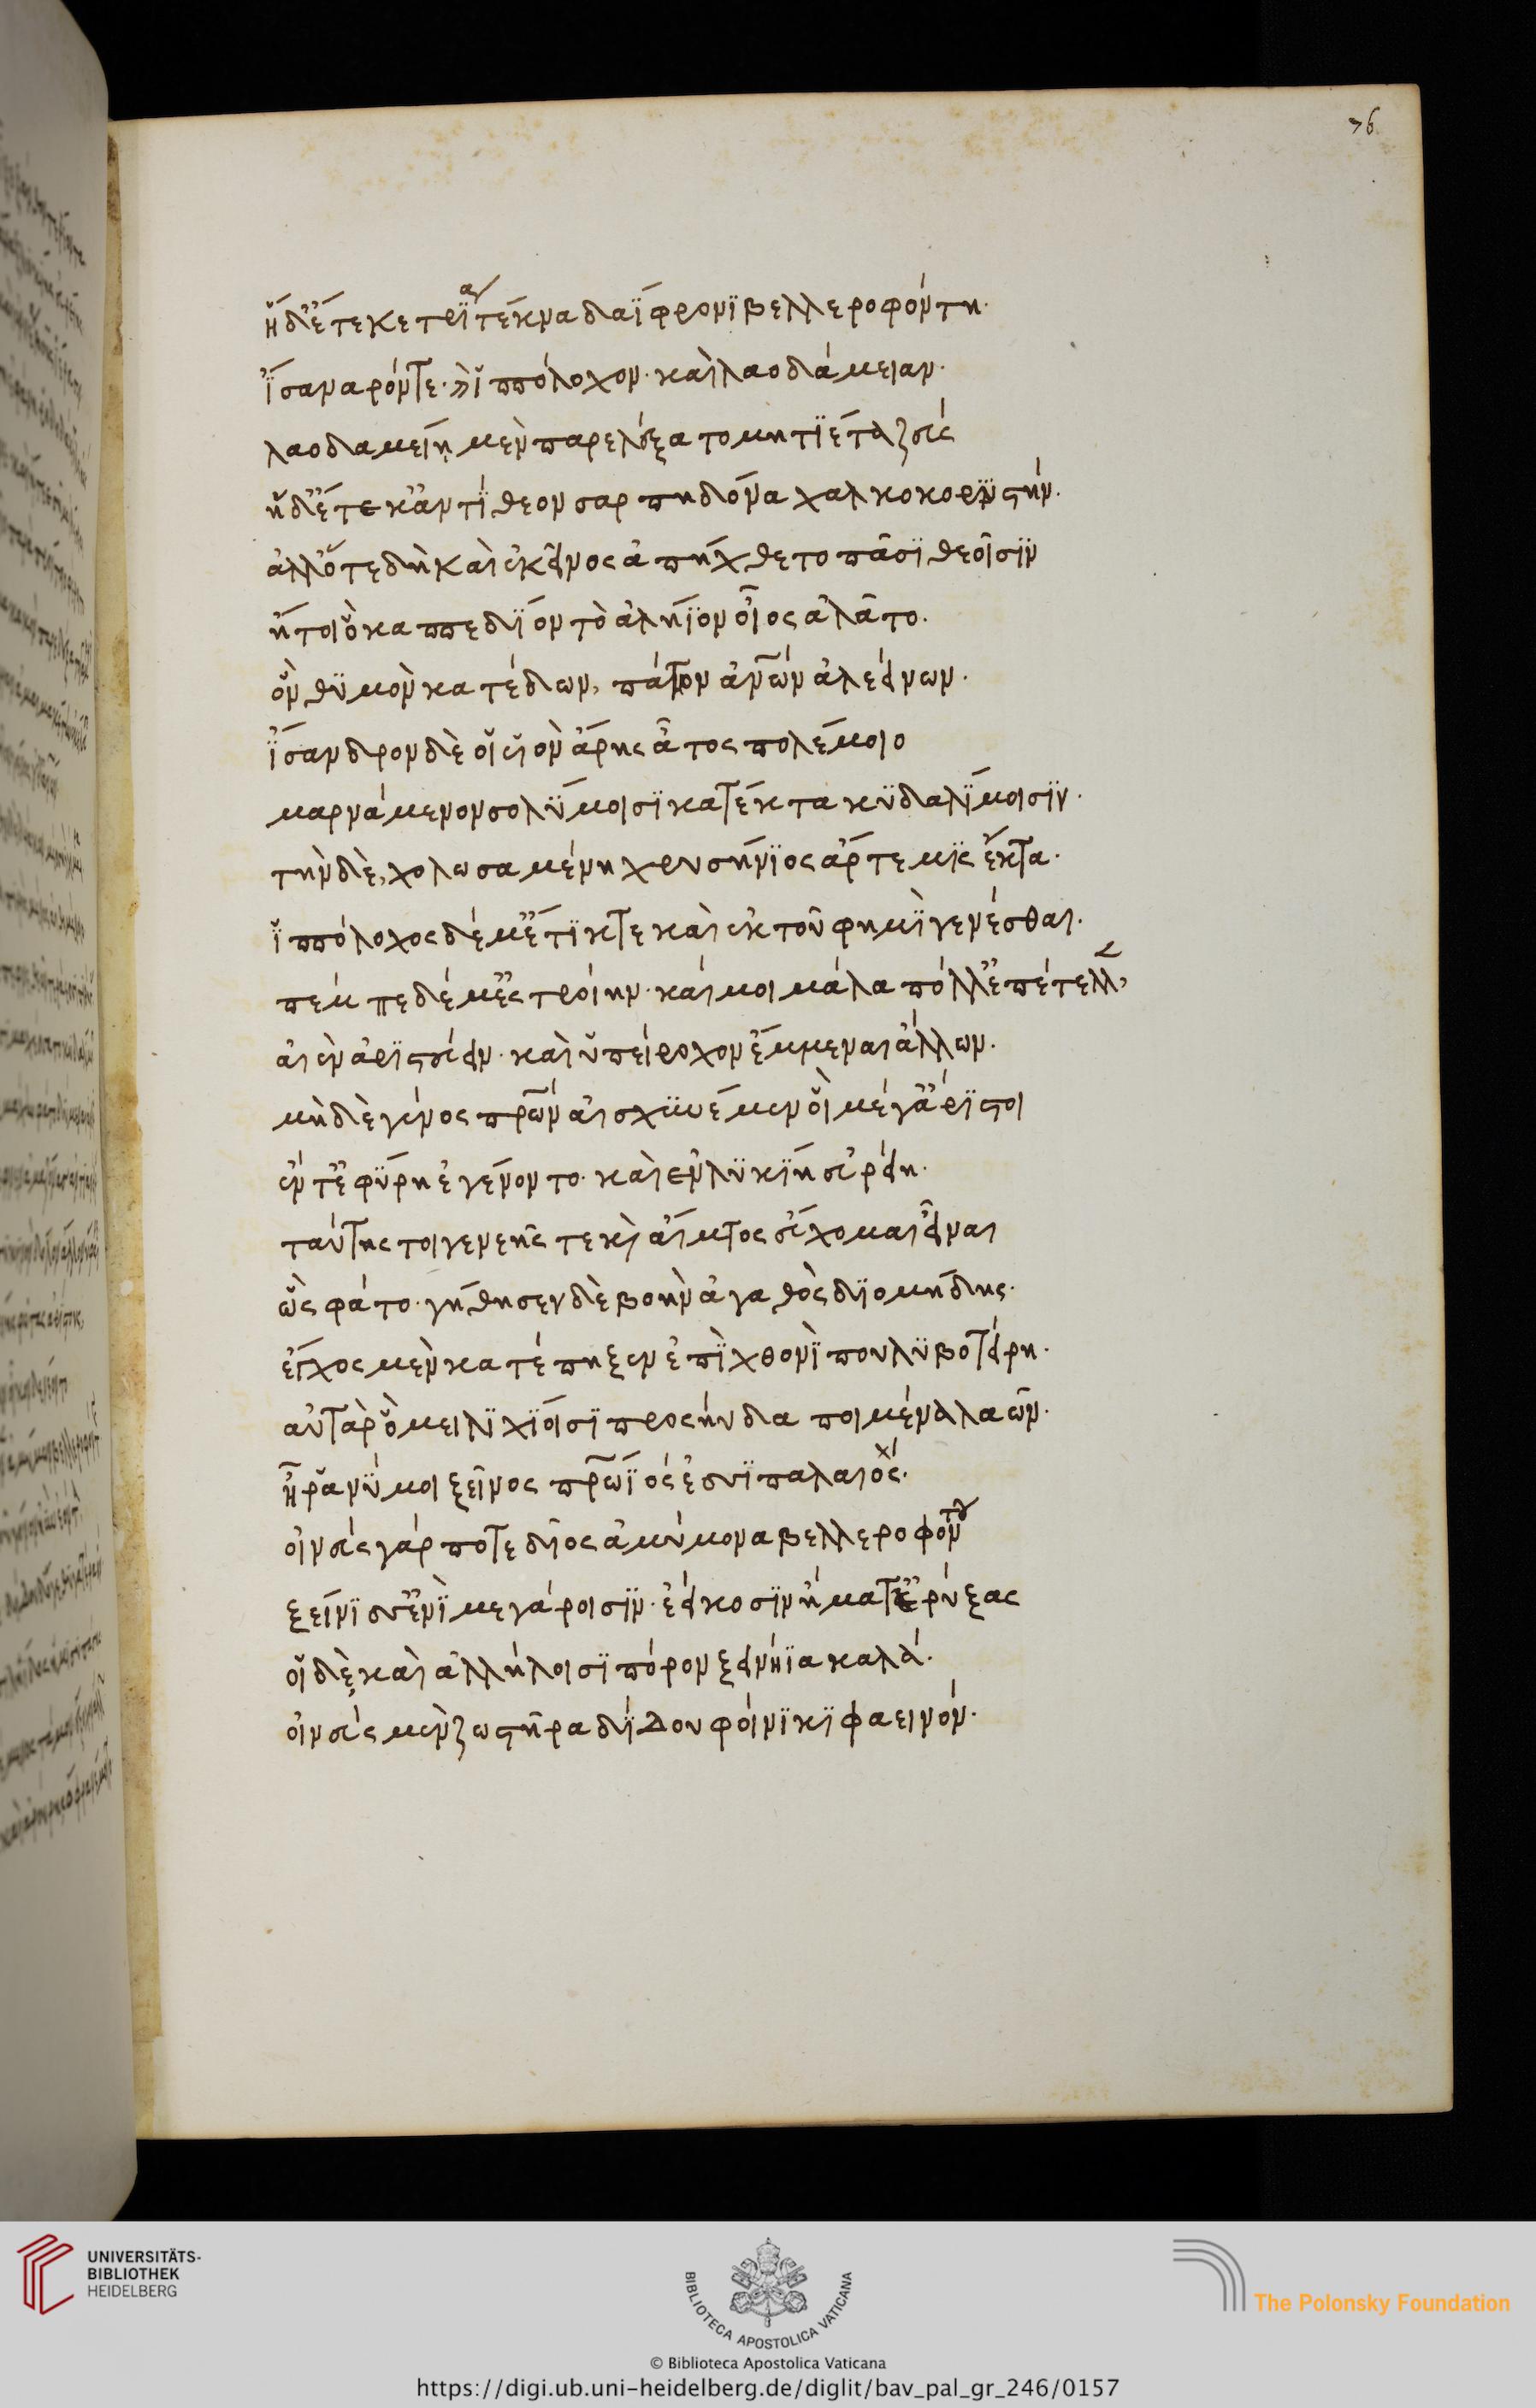 76
ἣ δ' ἔτεκε τρία τέκνα δαΐφρονι βελλεροφόντη·
ἴσανδρόν τε· καὶ ἱππόλοχον· καὶ λαοδάμειαν·
λαοδαμείῃ μὲν παρελέξατο μητίετα ζεύς
ἣ δ' ἔτεκ' ἀντίθεον σαρπηδόνα χαλκοκορυστήν·
ἀλλ' ὅτε δὴ καὶ ἐκεῖνος ἀπήχθετο πᾶσι θεοῖσιν
ἤτοι ὃ καππεδίον τὸ ἀλήϊον οἶος ἀλᾶτο·
ὃν θυμὸν κατέδων, πάτον ἀνθρώπων ἀλεείνων·
ἴσανδρον δὲ οἱ υἱὸν ἄρης ἆτος πολέμοιο
μαρνάμενον σολύμοισι κατέκτα κυδαλίμοισιν·
τὴν δὲ, χολωσαμένη χρυσήνιος ἄρτεμις ἔκτα·
ἱππόλοχος δέ μ' ἔτικτε καὶ ἐκ τοῦ φημὶ γενέσθαι·
πέμπε δέ μ' ἐς τροίην· καί μοι μάλα πόλλ' ἐπέτελλεν,
αἰὲν ἀριστεύειν· καὶ ὑπείροχον ἔμμεναι ἄλλων·
μὴ δὲ γένος πατέρων αἰσχυνέμεν οἳ μέγ' ἄριστοι
ἔν τ' ἐφύρῃ ἐγένοντο· καὶ ἐν λυκίῃ εὐρείῃ·
ταύτης τοι γενεῆς τε καὶ αἵματος εὔχομαι εἶναι
ὣς φάτο· γήθησεν δὲ βοὴν ἀγαθὸς διομήδης·
ἔγχος μὲν κατέπηξεν ἐπὶ χθονὶ πουλυβοτείρῃ·
αὐτὰρ ὃ μειλιχίοισι προσηύδα ποιμένα λαῶν·
ἦ ῥα νύ μοι ξεῖνος πατρώϊός ἐσσι παλαιός·
οἰνεύς γάρ ποτε δῖος ἀμύμονα βελλεροφόντην
ξείνισ' ἐνὶ μεγάροισιν· ἐείκοσιν ἤματ' ἐρύξας
οἳ δὲ καὶ ἀλλήλοισι πόρον ξεινήϊα καλά·
οἰνεύς μὲν ζωστῆρα δίδου φοίνικι φαεινόν·
UNIVERSITÄTS-
BIBLIOTHEK
HEIDELBERG
BIBLIOTECA APOSTOLICA VATICANA
The Polonsky Foundation
© Biblioteca Apostolica Vaticana
https://digi.ub.uni-heidelberg.de/diglit/bav_pal_gr_246/0157